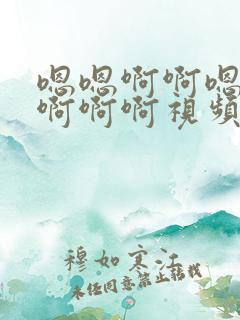 嗯嗯啊啊嗯
啊啊啊視頻
穆如寒江
未经同意禁止转载